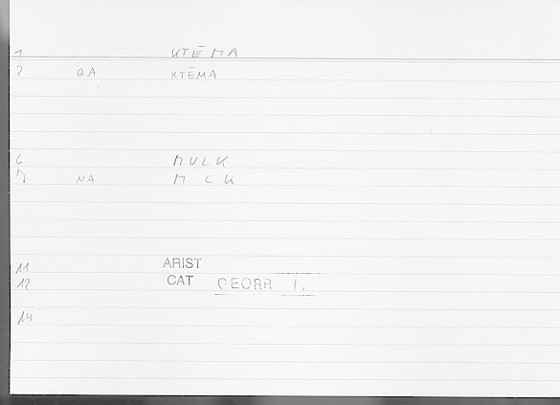 1 KTĒMA
2 QA KTĒMA
6 MULK
7 NA MLK
11 ARIST
12 CAT GEORR 1.
14